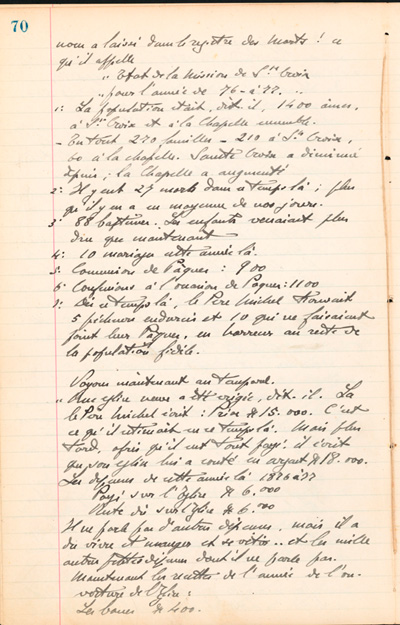 70
nous a laissé dans le registre des morts ! ce
qu'il appelle
"Etat de la Mission de Ste Croix
"pour l'année de 76-à 77. "
1: La population était, dit-il, 1400 âmes,
à Ste Croix et à la Chapelle ensemble.
- En tout 270 familles - 210 à Ste Croix,
60 à la chapelle. Sainte Croix a diminué
depuis ; la Chapelle a augmenté
2: Il y eut 27 morts dans ce temps là ; plus
qu'il y en a en moyenne de nos jours.
3: 88 baptêmes. Les enfants venaient plus
dru que maintenant
4: 10 mariages cette année là.
5: Communions de Pâques : 900
6: Confessions à l'occasion de Pâques: 1100
7: Dès ce temps là, le Père Michel trouvait
5 pécheurs endurcis et 10 qui ne faisaient
point leurs Pâques, en horreur au reste de
la population fidèle.
Voyons maintenant au temporel.
"Une église neuve a été érigée, dit-il. La
le Père Michel écrit : Prix $15.000. C'est
ce qu'il estimait en ce temps là. Mais plus
tard, après qu'il eut tout payé, il écrit
que son église lui a coûté en argent $18.000.
Les dépenses de cette année là 1876 à 77
Payé sur l'Eglise $ 6,000
Reste dû sur l'Eglise $ 6.000
Il ne parle pas d'autres dépenses, mais il a
dû vivre et manger et se vêtir.. et les mille
autres petites dépenses dont il ne parle pas.
Maintenant les recettes de l'année de l'ou-
verture de l'Eglise :
Les bancs $ 400.